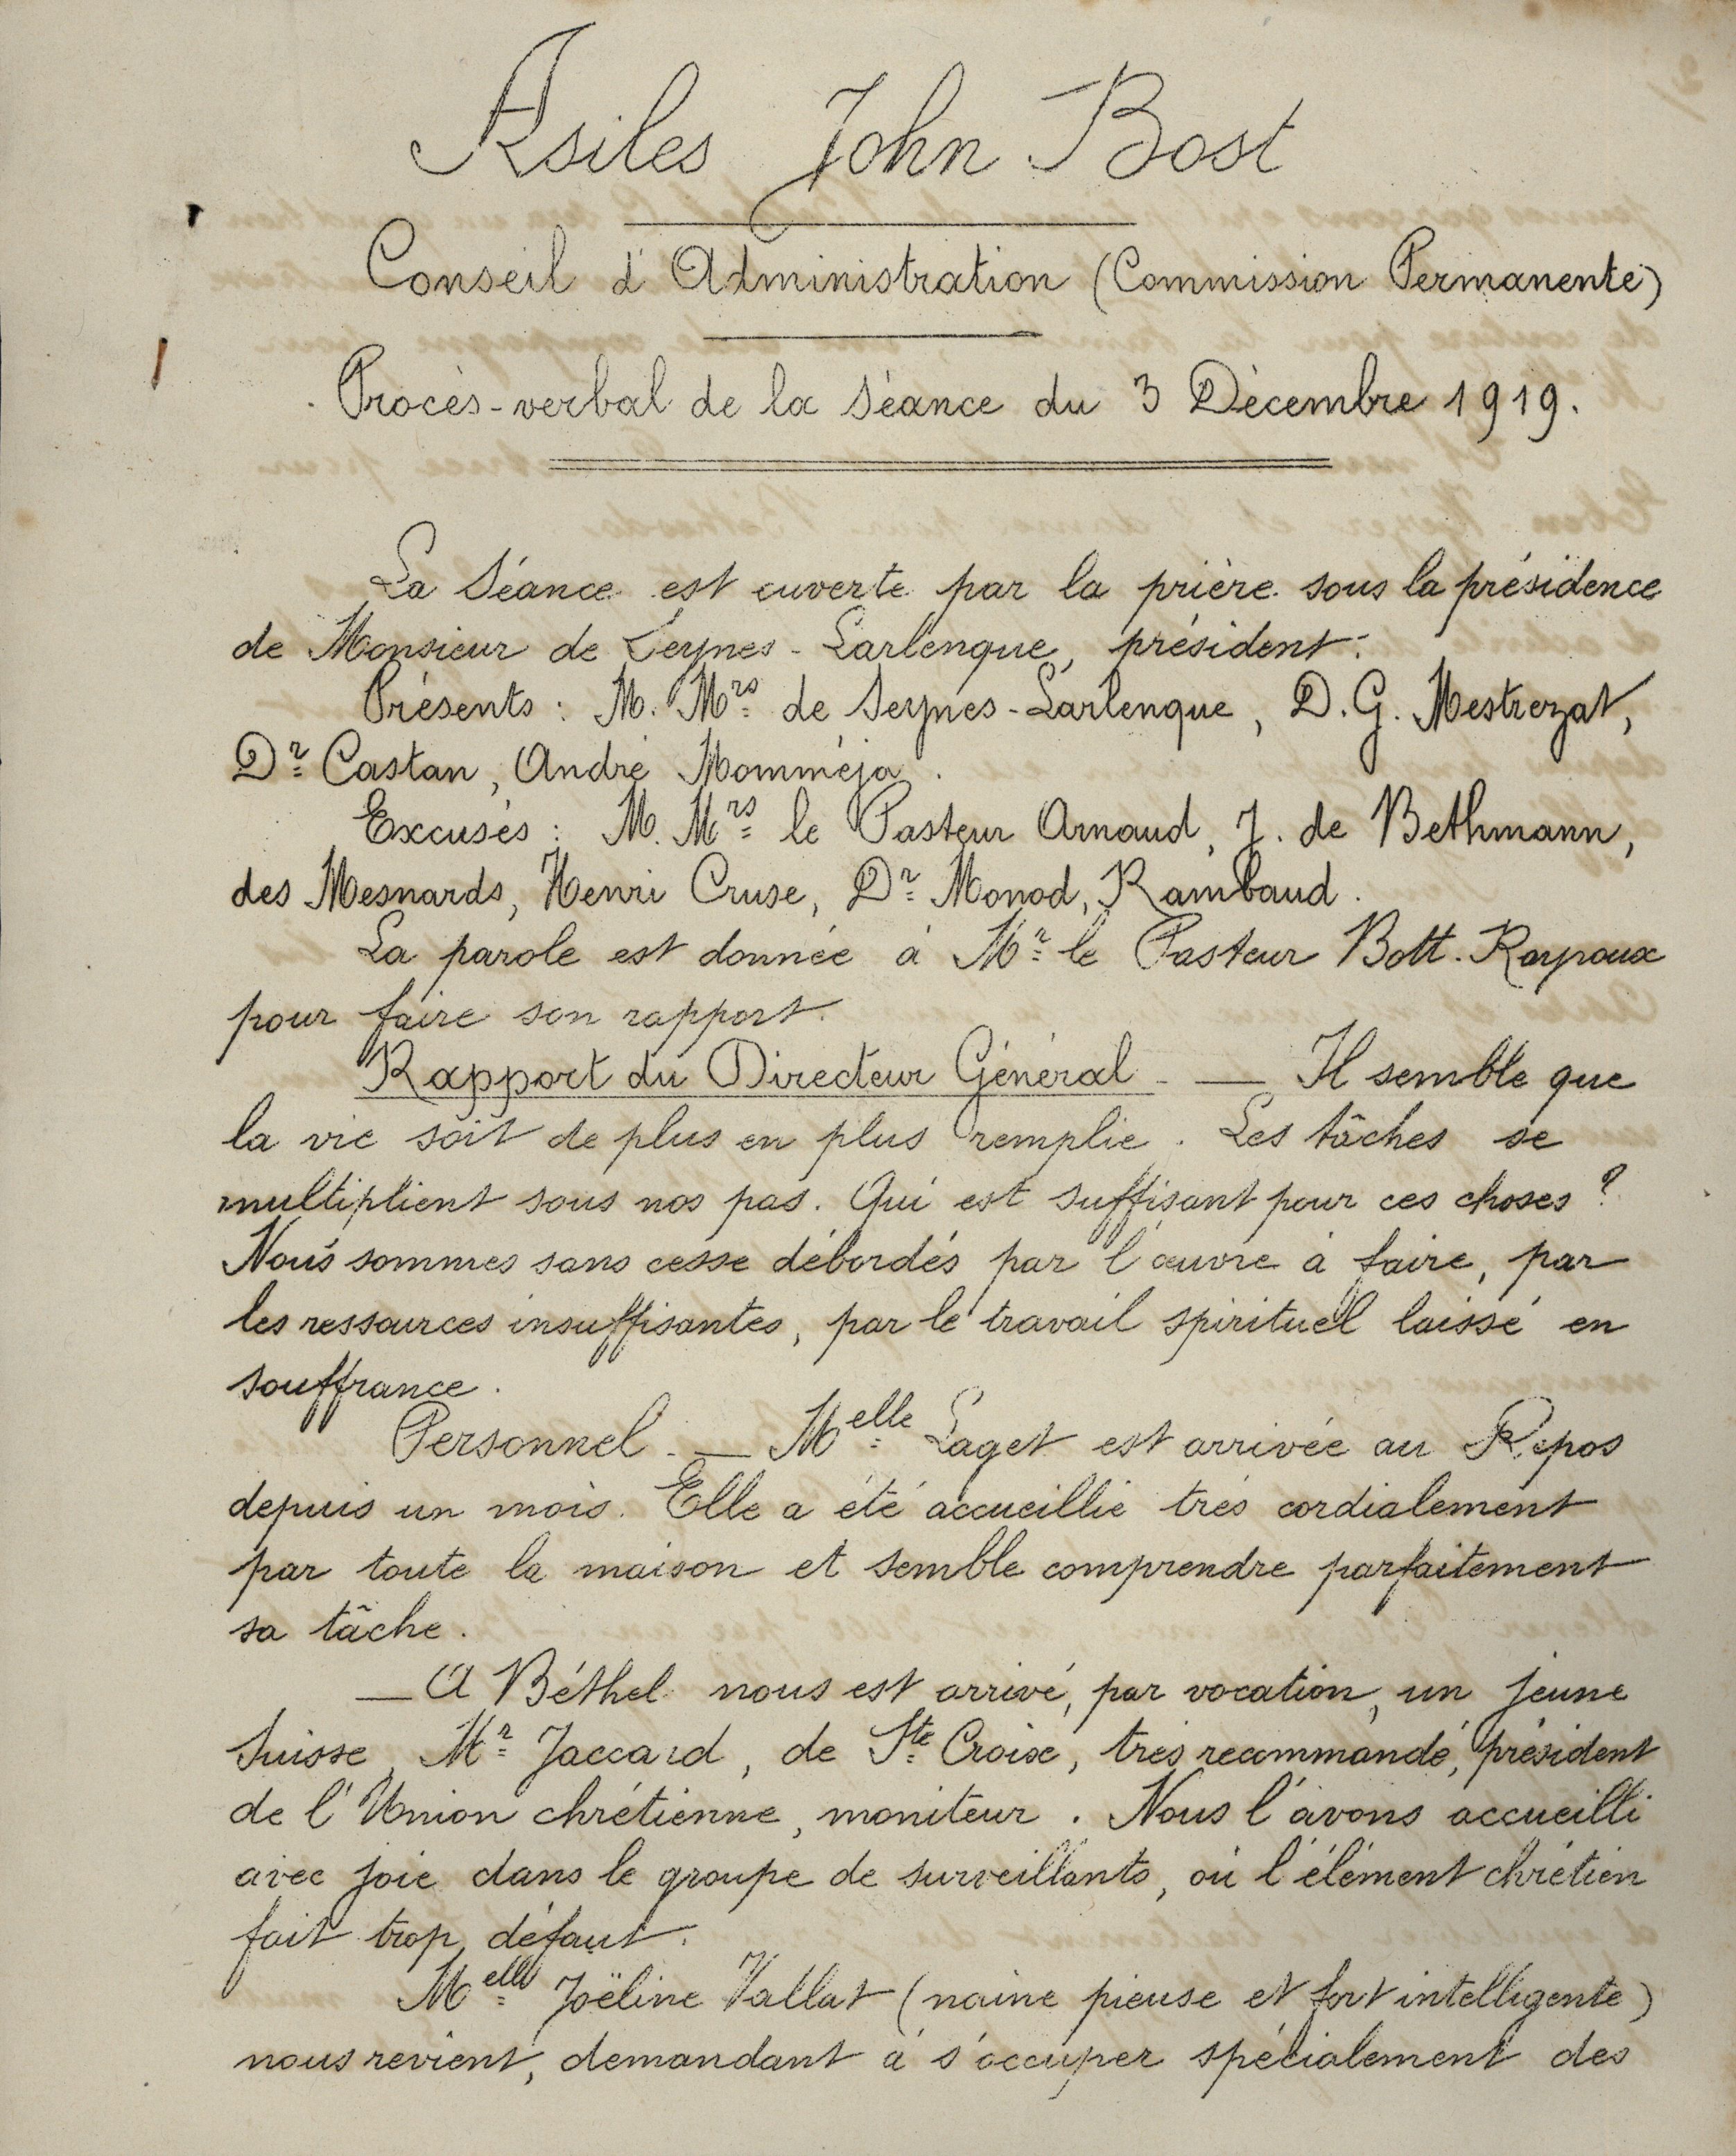 Asiles John Bost
Conseil d'Administration (Commission Permanente)
Procès-verbal de la Séance du 3 Décembre 1919.
La Séance est ouverte par la prière sous la présidence
de Monsieur de Seynes-Larlenque, président.
Présents : M. Mrs de Seynes-Larlenque, D. G. Mestrezat,
Dr Castan, André Momméja.
Excusés : M. Mrs le Pasteur Arnaud, J. de Bethmann,
des Mesnards, Henri Cruse, Dr Monod, Rambaud.
La parole est donnée à Mr le Pasteur Bott-Raynoux
pour faire son rapport.
Rapport du Directeur Général. — Il semble que
la vie soit de plus en plus remplie. Les tâches se
multiplient sous nos pas. Qui est suffisant pour ces choses ?
Nous sommes sans cesse débordés par l'œuvre à faire, par
les ressources insuffisantes, par le travail spirituel laissé en
souffrance.
Personnel. — Melle Laget est arrivée au Repos
depuis un mois. Elle a été accueillie très cordialement
par toute la maison et semble comprendre parfaitement
sa tâche.
— A Béthel nous est arrivé, par vocation, un jeune
Suisse, Mr Jaccard, de Ste Croix, très recommandé, président
de l'Union chrétienne, moniteur. Nous l'avons accueilli
avec joie dans le groupe de surveillants, où l'élément chrétien
fait trop défaut.
Melle Joëline Vallat (naine pieuse et fort intelligente)
nous revient, demandant à s'occuper spécialement des